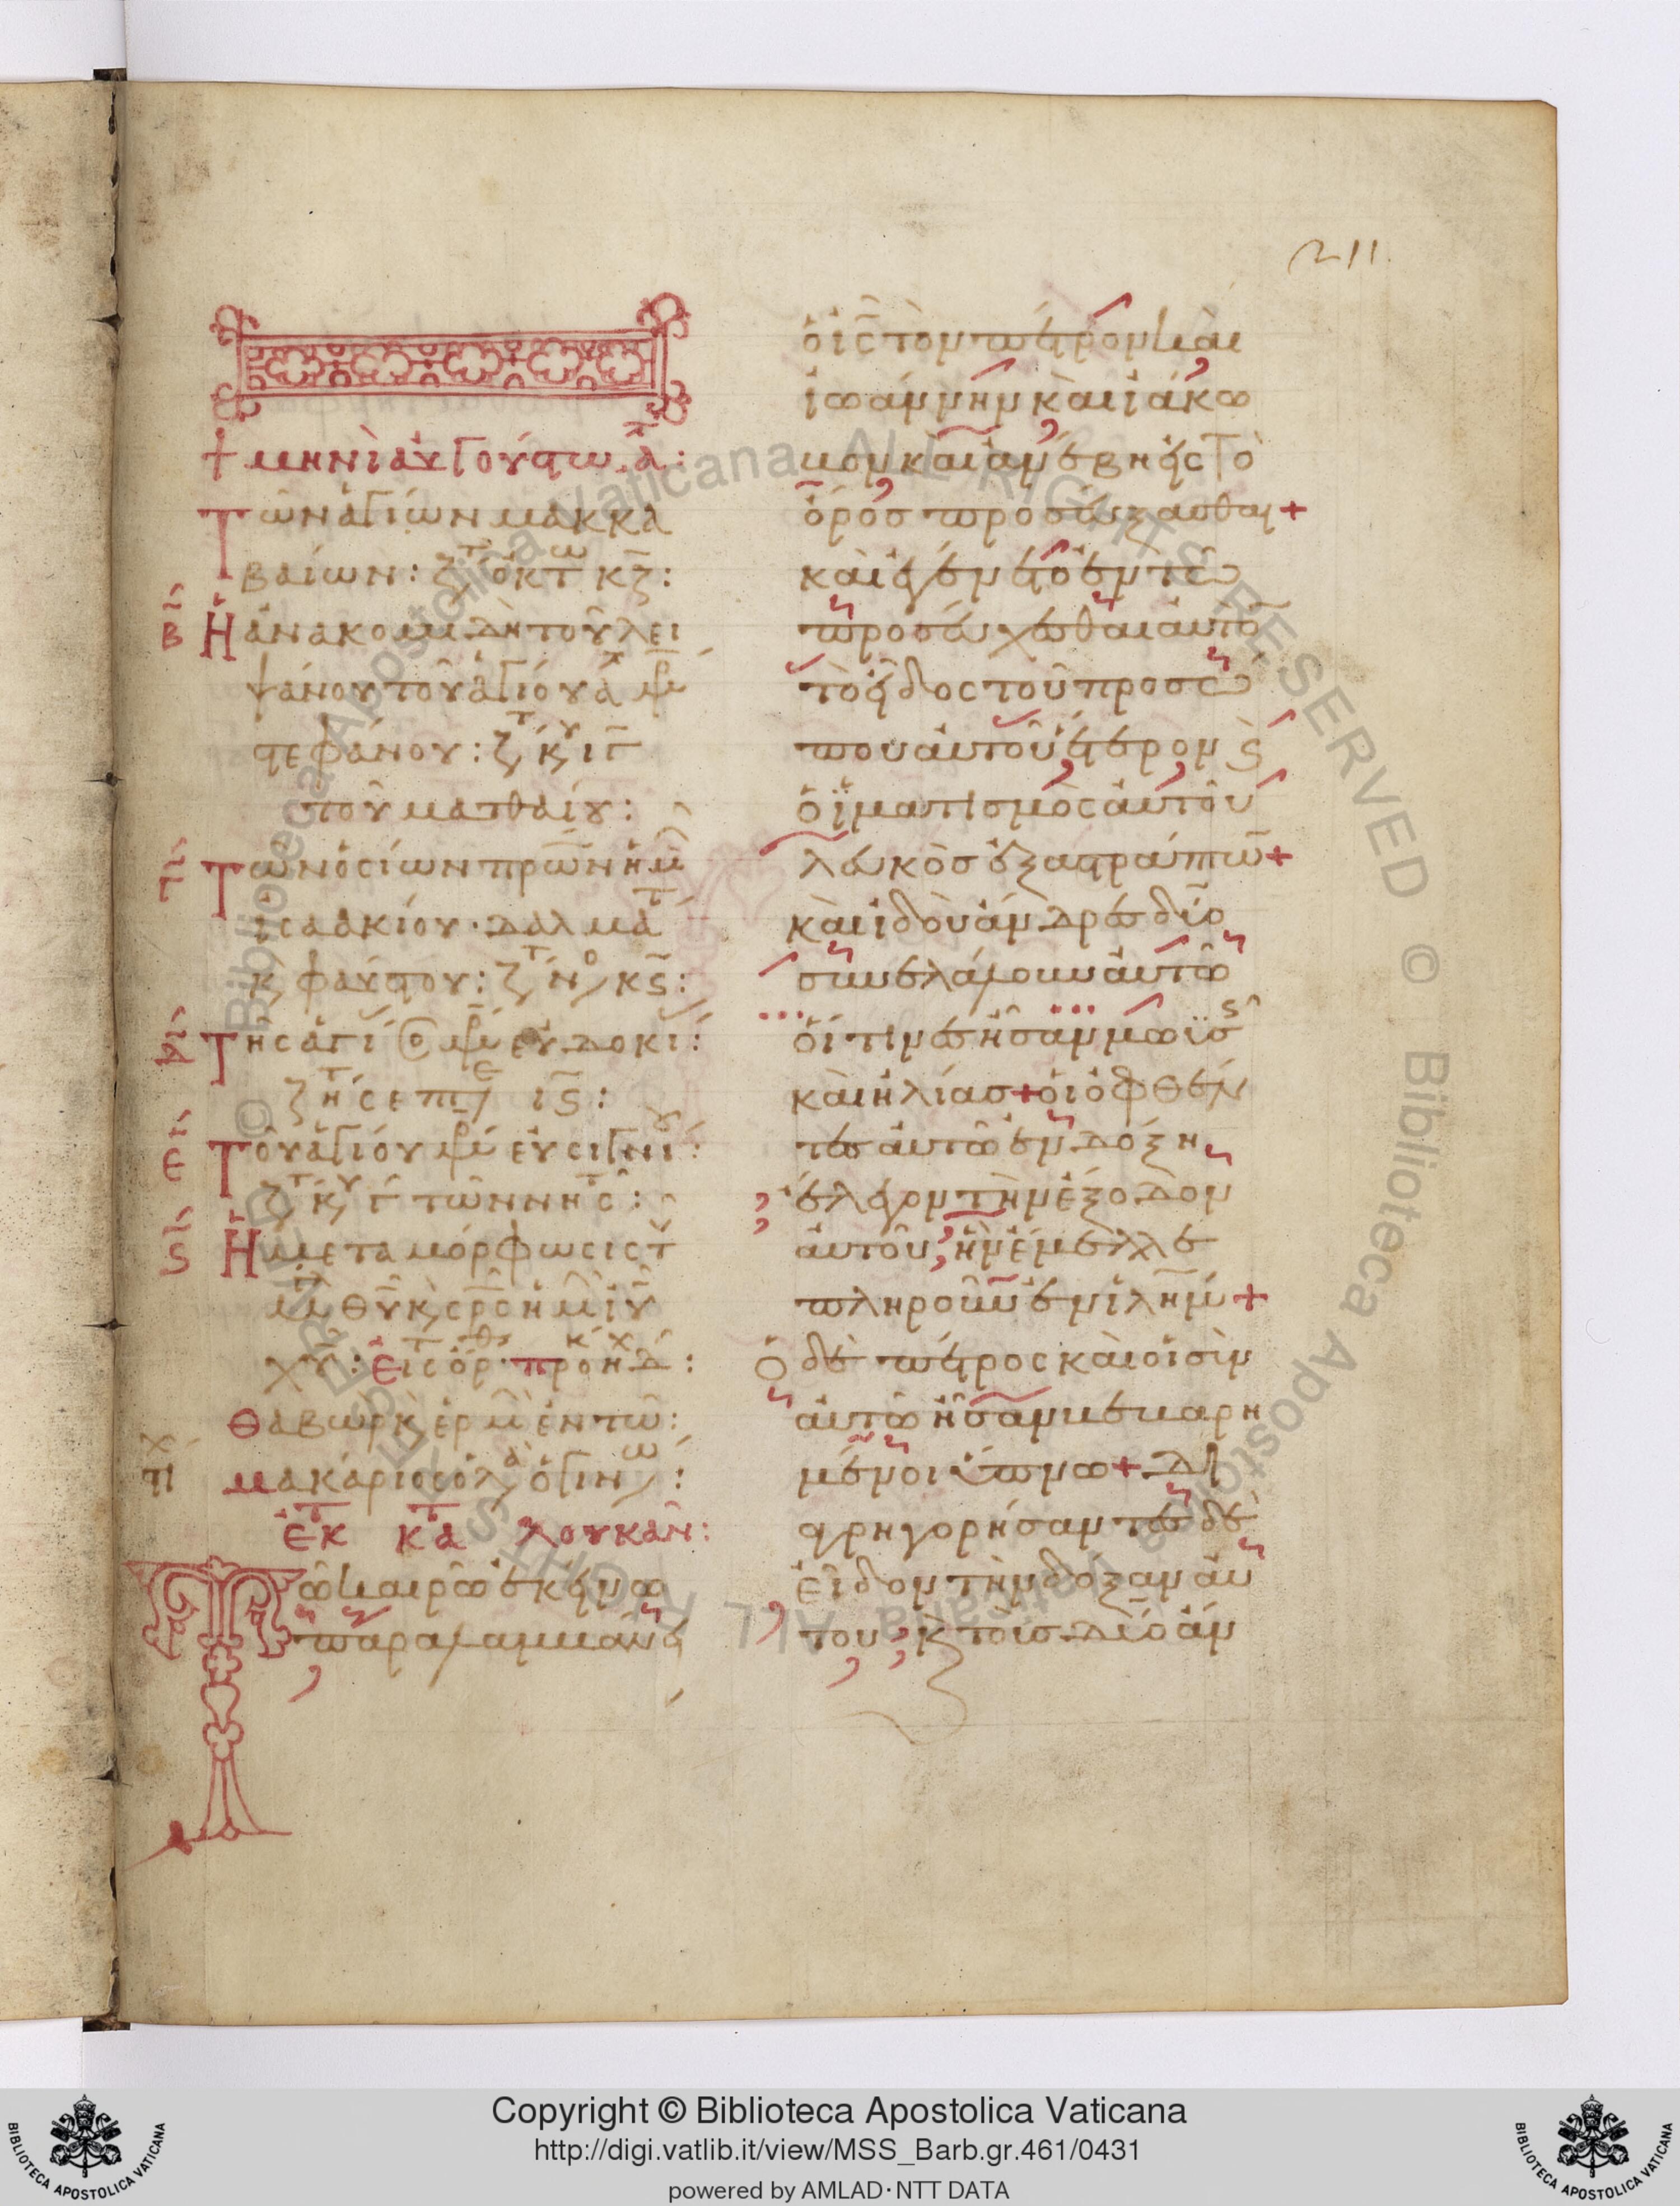 211
+ μηνὶ ἀυγούστω ᾱ:
Τῶν ἁγίων μακκα
βαίων: ζτ ὀκτω κζ:
β̄ Ἡ ἀνακομιδὴ τοῦ λει
ψάνου τοῦ ἁγίου ᾱ
στεφάνου: ζτ κ, ιγ
τοῦ ματθαίου:
γ̄ Τῶν ὁσίων πρων ἡμ
ἰσαακίου· δαλμάτ
κ, φαύστου: ζτ κς:
δ̄ Τῆς ἁγί ευδοκί:
ζτ ις:
ε̄ Τοῦ ἁγίου ευσιγνί:
ζτ κ, γ τῶν νη:
ς̄ Ἡ μεταμόρφωσις τ
θυ κ, σρς ἡμ ιυ
χυ: Εἰς ὀρ·
Θαβωρ κ, ερμ ἐν τῶ:
μακάριος ὁ λα ὁ γιν:
ἐκ τ κατ λουκᾶν:
Τῶ καιρῶ ἐκείνω
παραλαμβάνει
ὁ ις τὸν πέτρον καὶ
ἰωάννην καὶ ἰάκω
βον καὶ ἀνέβη εἰς τὸ
ὄρος προσεύξασθαι+
καὶ ἐγένετο ἐν τῶ
προσεύχεσθαι αὐτὸ
τὸ εἶδος τοῦ προσώ
που αὐτοῦ ἕτερον ϛ
ὁ ϊματισμὸς αὐτοῦ
λευκὸς ἐξαστράπτω+
καὶ ἰδοὺ ἄνδρες δύο
συνελάλουν αὐτῶ
οἵτινες ἦσαν μωϋσ
καὶ ἠλίας+ οἱ ὀφθέν
τες αὐτῶ ἐν δόξη
ἔλεγον τὴν ἔξοδον
αὐτοῦ, ἣν ἔμελλε
πληροῦν ἐν ἰλημ+
Ὁ δὲ πέτρος καὶ οἱ σὺν
αὐτῶ ἦσαν βεβαρη
μένοι ὕπνω+ Δι
αγρηγορήσαντες δὲ
εἶδον τὴν δόξαν αὐ
του, κ, τοὺς δύο ἄν
Copyright © Biblioteca Apostolica Vaticana
http://digi.vatlib.it/view/MSS_Barb.gr.461/0431
powered by AMLAD·NTT DATA
BIBLIOTECA APOSTOLICA VATICANA
BIBLIOTECA APOSTOLICA VATICANA